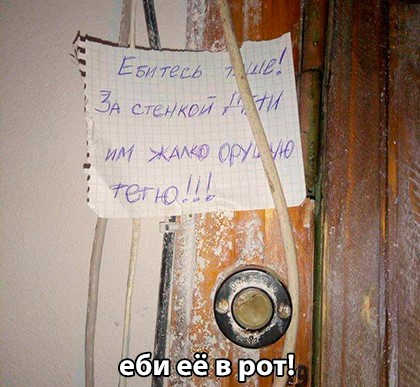 Ебитесь тише!
За стенкой дети
им жалко орущую
тетю!!!
еби её в рот!